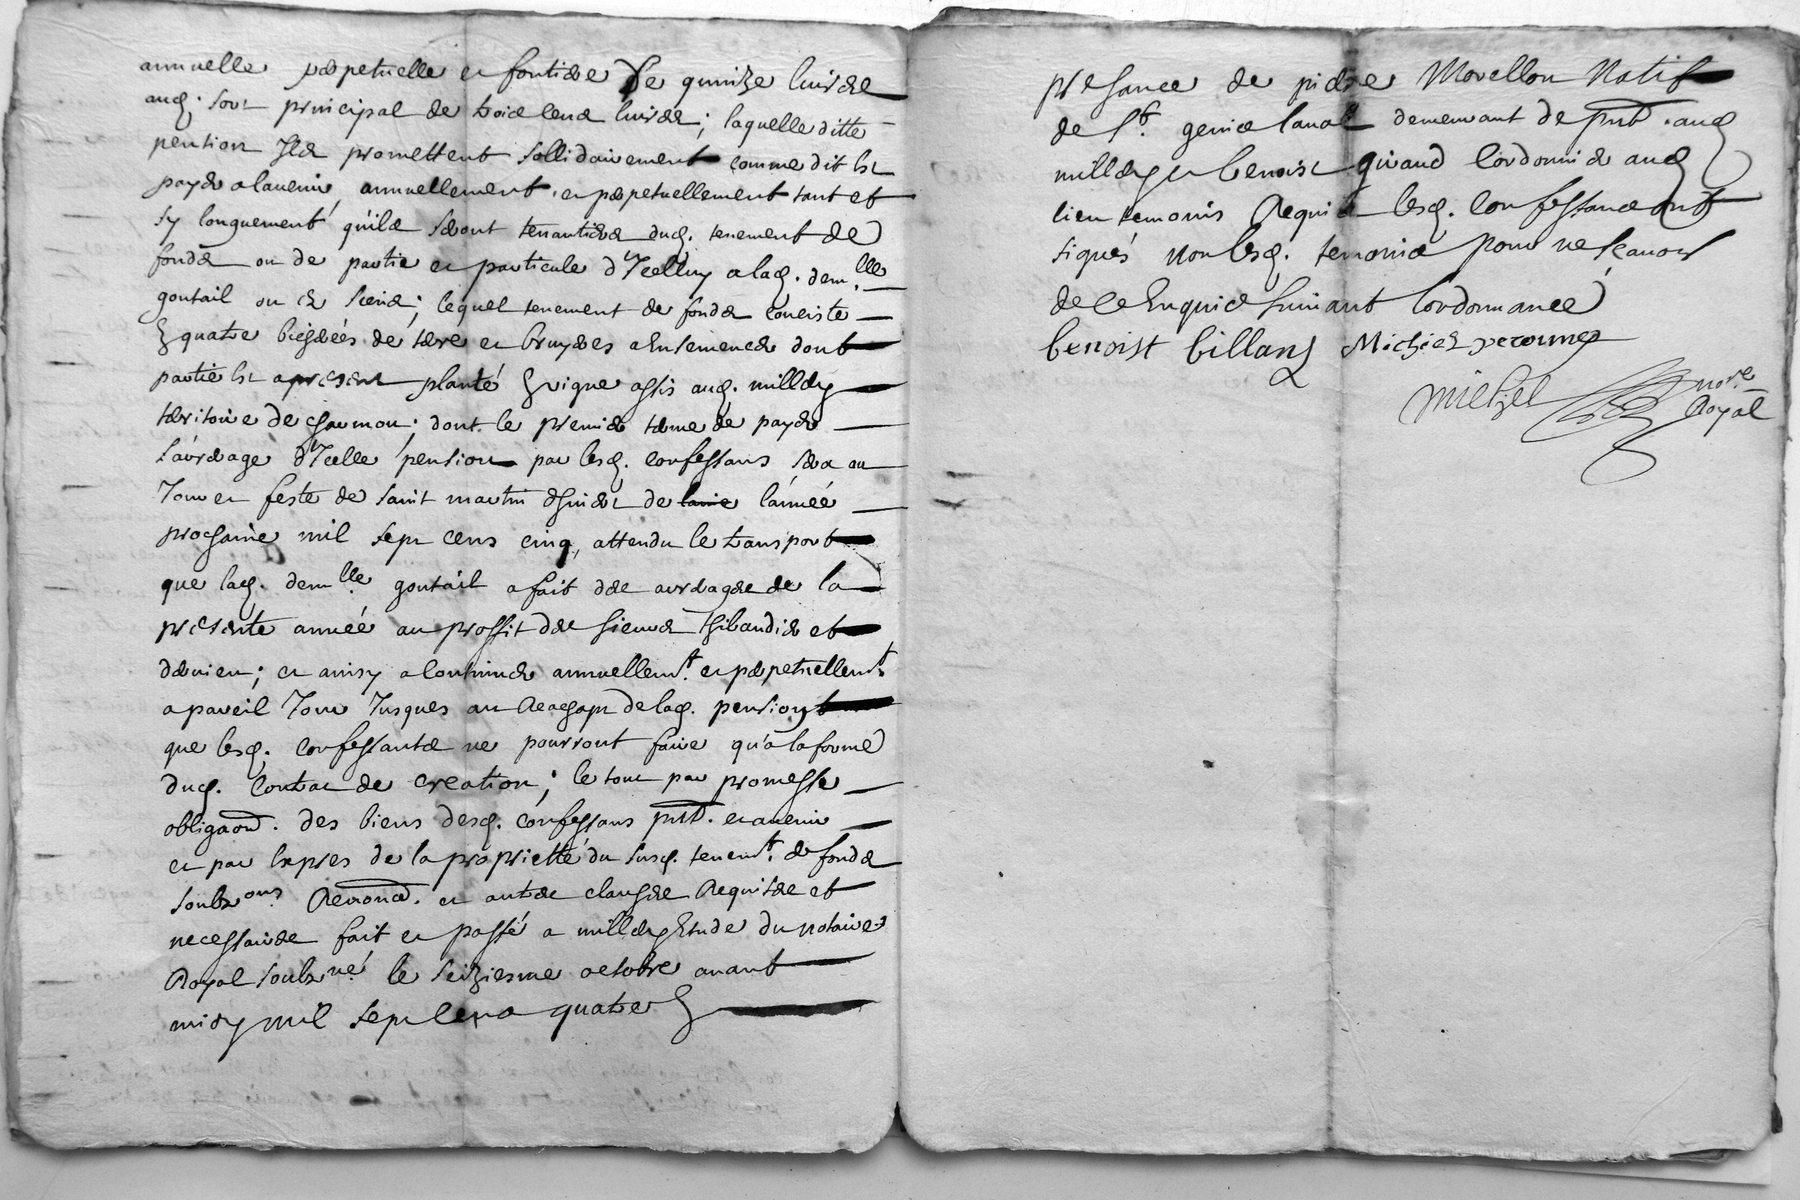 annuelle perpetuelle et fontiere De quinze livres
aud. sort principal de trois cens livres; laquelle ditte
pention Ils promettent sollidairement comme dit est
payer a lavenir annuellement et perpetuellement tant et
sy longuement qu'ils seront tenantiers dud. tenement de
fonds ou de partie et particule d'Icelluy a lad. dem.lle
goutail ou es siens; lequel tenement de fonds consiste
En quatre bicherées de terre et bruyeres a Ensemencer dont
partie est a present planté En vigne assis aud. millery
territoire de chaumon; dont le premier terme de payer
l'arrerage d'Icelle pention par lesd. confessans sera au
Jour et feste de saint martin d'hiver de lanne l'année
prochaine mil sept cens cinq, attendu le transport
que lad. dem.lle goutail a fait des arrerages de la
presente année au proffit des sieurs Thibaudier et
; et ainsy a continuer annuellem.t et perpetuellem.t
a pareil Jour Jusques au Reachapt de lad. pension
que lesd. confessants ne pourront faire qu'a la forme
dud. contrat de creation; le tout par promesse
obligaon. des biens desd. confessans pnts. et avenir
et par Expres de la proprietté du susd. tenem.t de fonds
soubz.ons Renonca. et autres clauses Requises et
necessaires fait et passé a millery Etude du notaire
Royal soubz.né le seiziesme octobre avant
midy mil sept cens quatre En
presance de pierre Morellon Natif
de S.t genis laval demeurant de pnt. aud
millery et benoist giraud Cordonnier aud
lieu temoins Requis lesd. Confessans ont
signés non lesd. temoins pour ne scavoir
de ce Enquis suivant l'ordonnance
benoist billard Michiel
Michel no.re
Royal